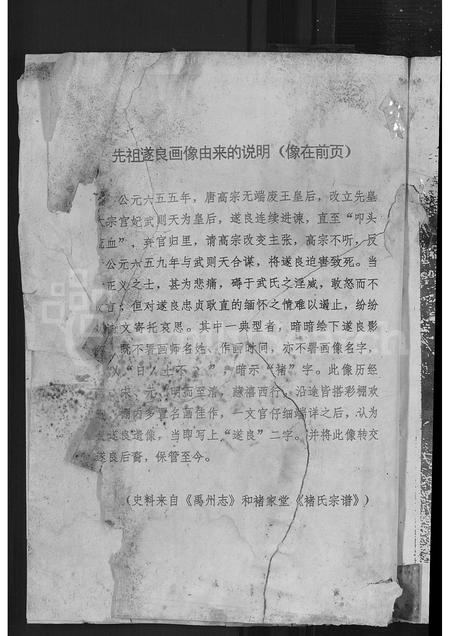 先祖遂良画像由来的说明（像在前页）
公元六五五年，唐高宗无端废王皇后，改立先皇
宗宫妃武则天为皇后，遂良连续进谏，直至“叩头
血”，弃官归里，请高宗改变主张，高宗不听，反
公元六五九年与武则天合谋，将遂良迫害致死。当
正义之士，甚为悲痛，碍于武氏之淫威，敢怒而不
言；但对遂良忠贞耿直的缅怀之情难以遏止，纷纷
文寄托哀思。其中一典型者，暗暗绘下遂良影
既不署画师名姓、作画时间，亦不署画像名字，
”，暗示“褚”字。此像历经
宋、元、明而至清，慈禧西行，沿途皆搭彩棚欢
名画佳作，一文官仔细端详之后，认为
遂良遗像，当即写上“遂良”二字。并将此像转交
遂良后裔，保管至今。
（史料来自《禹州志》和褚家堂《褚氏宗谱》）